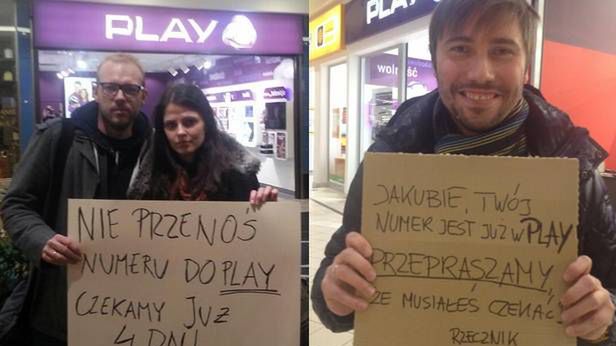 PLAY
NIE PRZENOŚ
NUMERU DO PLAY
CZEKAMY JUŻ
4 DNI
PLAY
wolność
JAKUBIE, TWÓJ
NUMER JEST JUŻ W PLAY
PRZEPRASZAMY,
ŻE MUSIAŁEŚ CZEKAĆ!
RZECZNIK